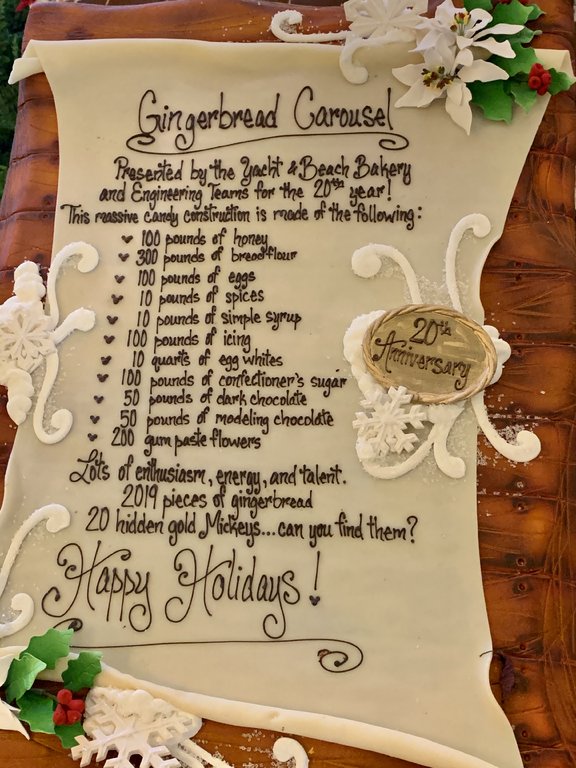 Gingerbread Carousel
Presented by the Yacht & Beach Bakery
and Engineering Teams for the 20th year!
This massive candy construction is made of the following:
100 pounds of honey
300 pounds of bread flour
100 pounds of eggs
10 pounds of spices
10 pounds of simple syrup
100 pounds of icing
10 quarts of egg whites
100 pounds of confectioner's sugar
50 pounds of dark chocolate
50 pounds of modeling chocolate
200 gum paste flowers
Lots of enthusiasm, energy, and talent.
2019 pieces of gingerbread
20 hidden gold Mickeys...can you find them?
Happy Holidays!
20th
Anniversary